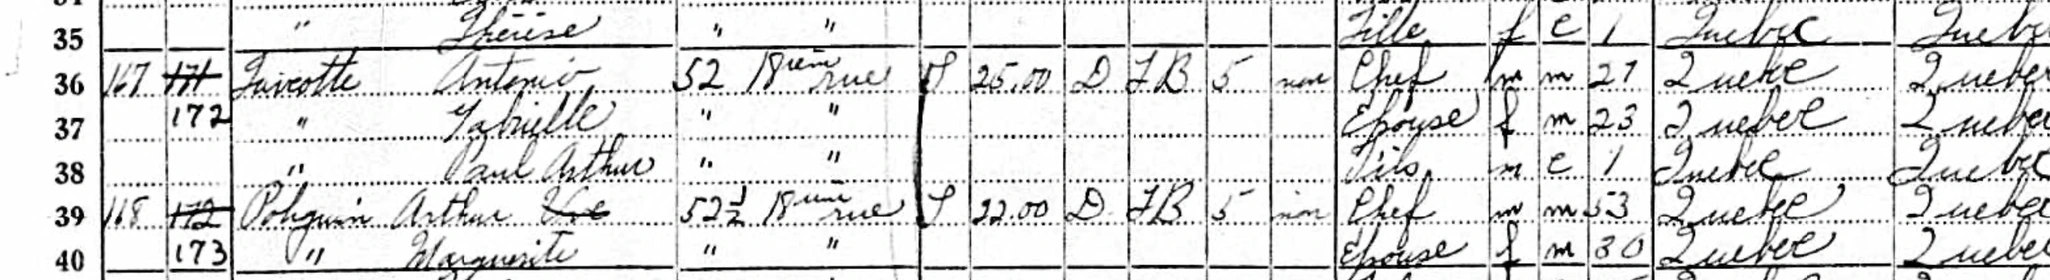 35 " Thérèse " " Fille f c 1 Quebec Quebec
36 167 171 Turcotte Antonio 52 18ième rue 25.00 D 5 non Chef m m 27 Quebec Quebec
37 172 " Gabrielle " " Epouse f m 23 Quebec Quebec
38 " Paul Arthur " " Fils m c 1 Quebec Quebec
39 168 172 Poliquin Arthur 52½ 18ième rue 22.00 D 5 non Chef m m 53 Quebec Quebec
40 173 " Marguerite " " Epouse f m 30 Quebec Quebec